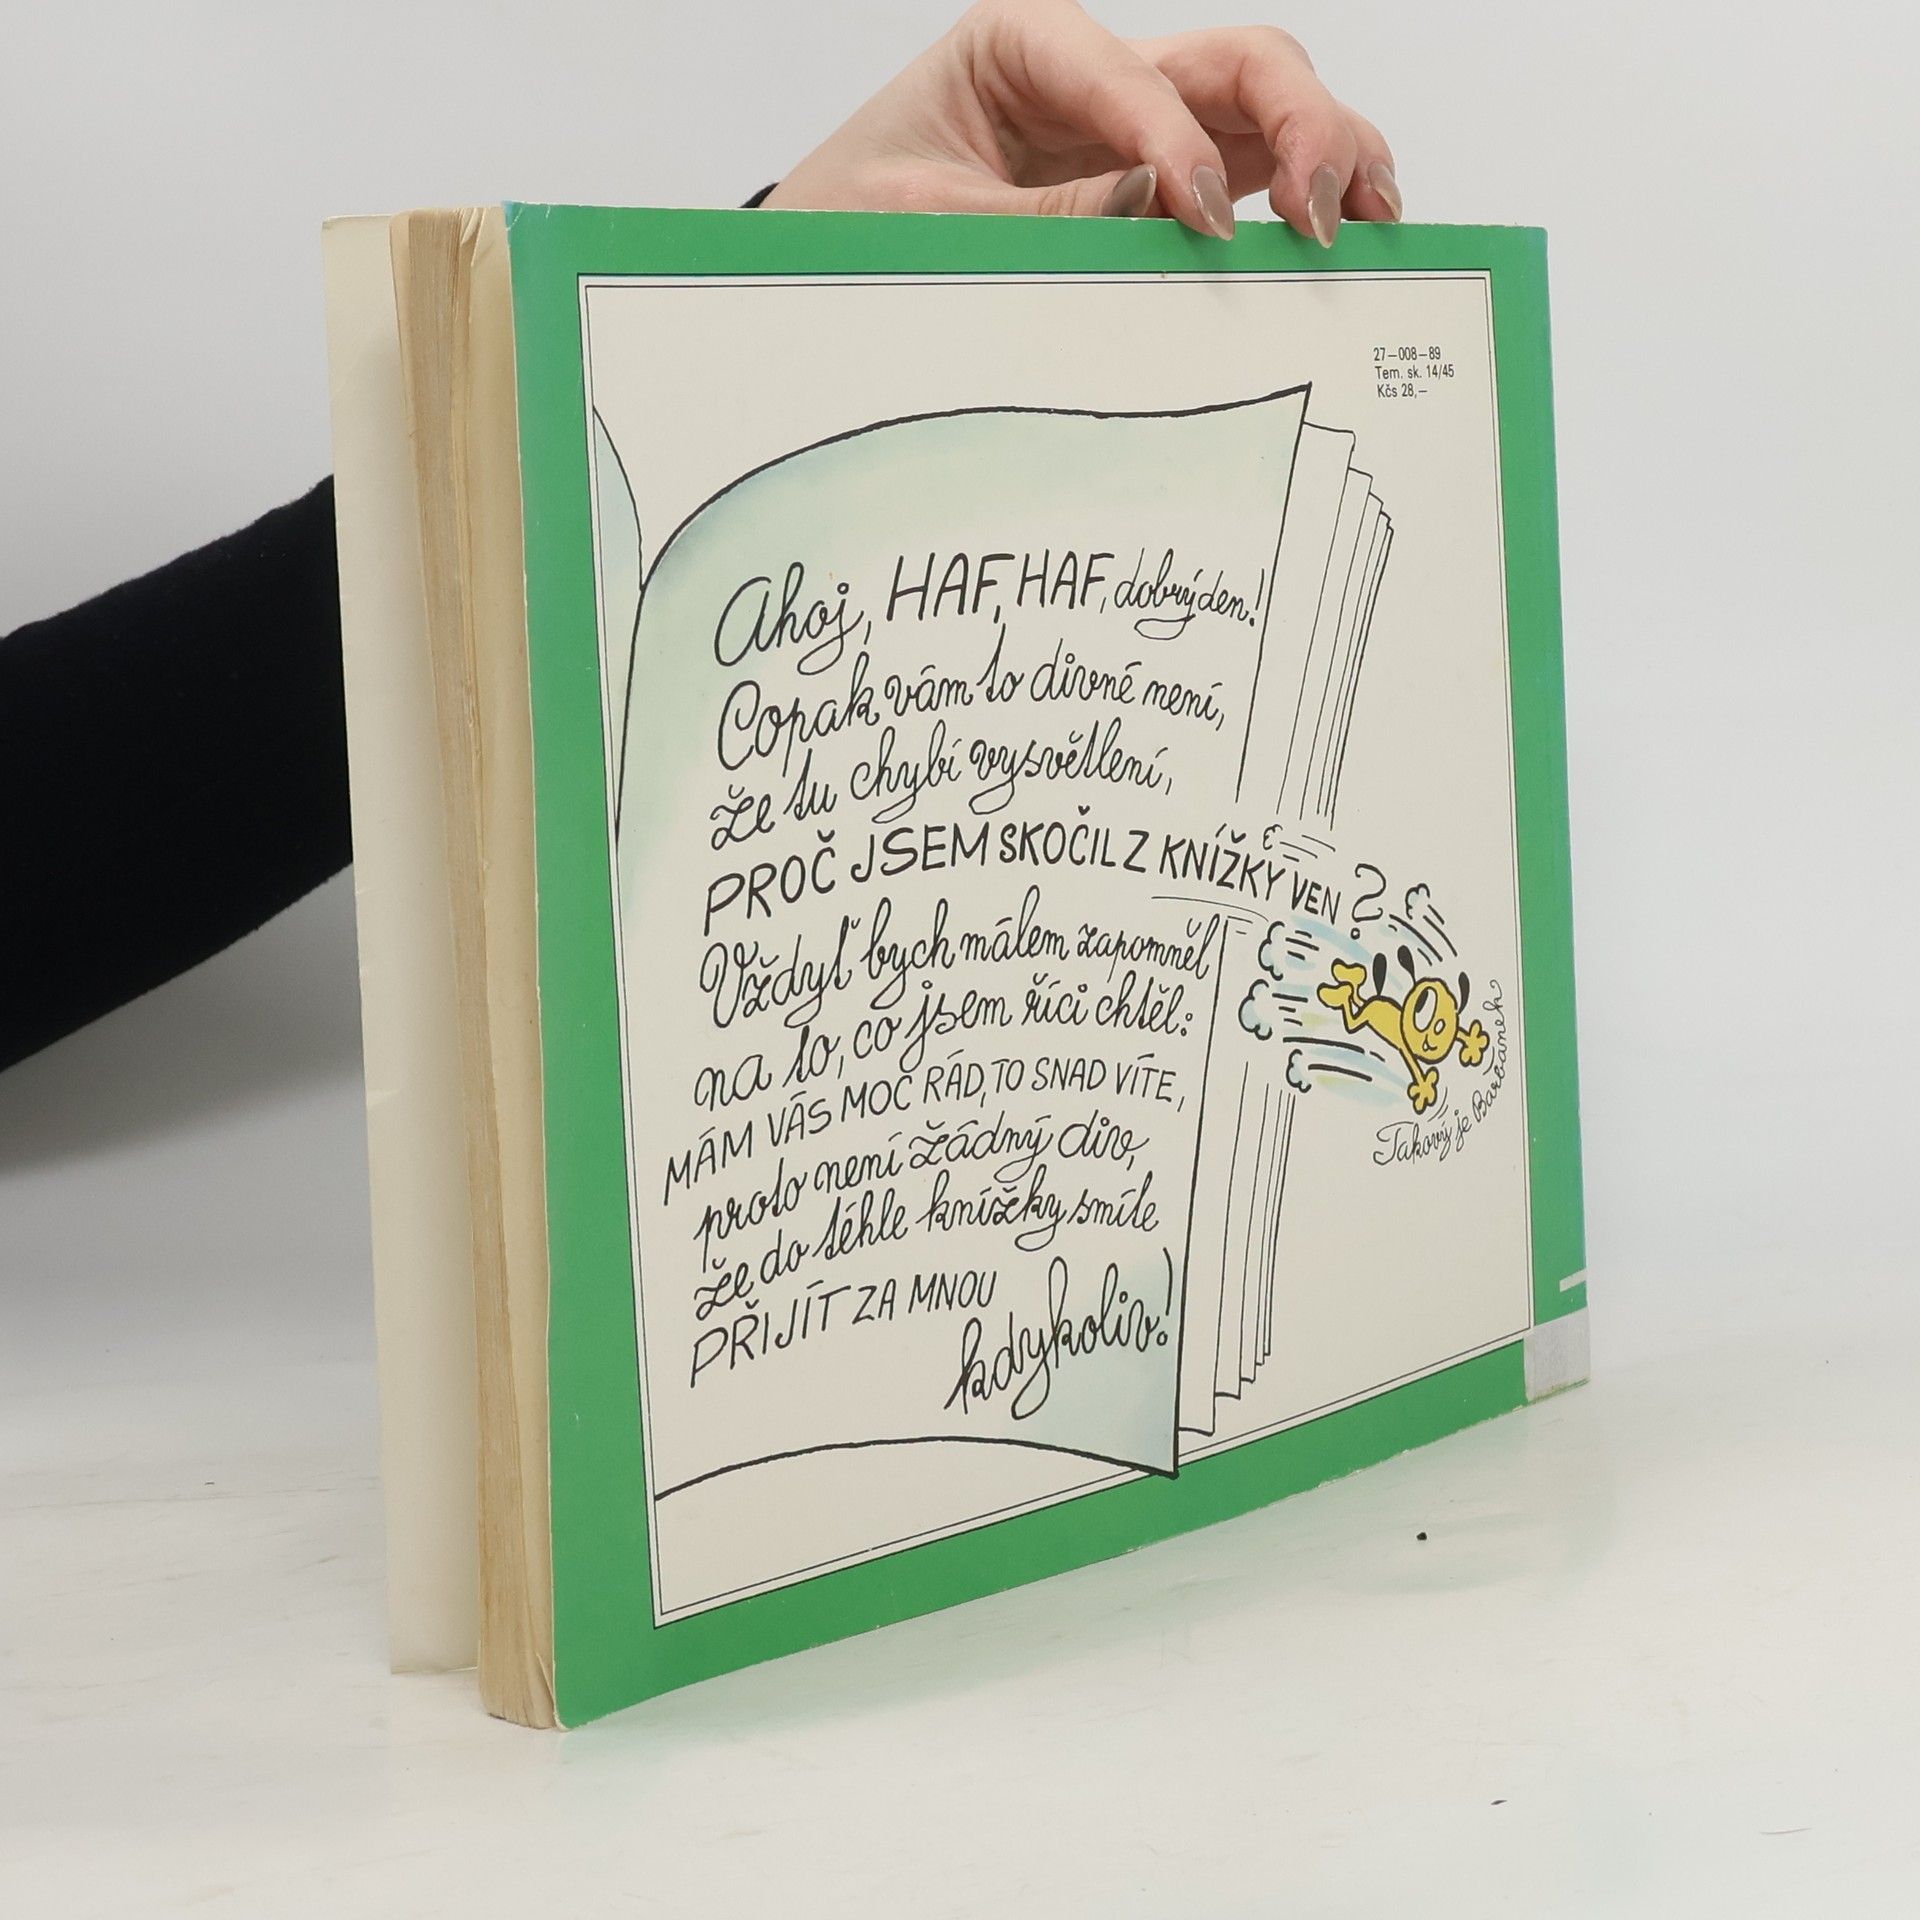 27–008–89
Tem. sk. 14/45
Kčs 28,–
Ahoj, HAF, HAF, dobrý den!
Copak vám to divné není,
že tu chybí vysvětlení,
PROČ JSEM SKOČIL Z KNÍŽKY VEN?
Vždyť bych málem zapomněl
na to, co jsem říci chtěl:
MÁM VÁS MOC RÁD, TO SNAD VÍTE,
proto není žádný div,
že do téhle knížky smíte
PŘIJÍT ZA MNOU
kdykoliv!
Takový je Barbánek